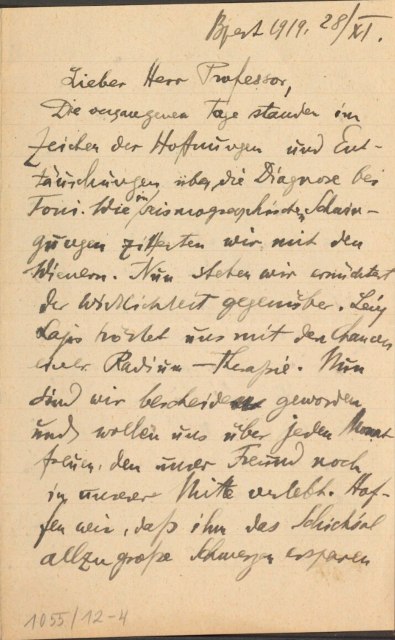 Bpest 1919. 28/XI.
Lieber Herr Professor,
Die vergangenen Tage standen im
Zeichen der Hoffnungen und Ent-
täuschungen über die Diagnose bei
Toni. Wie in seismographischen Schwin-
gungen zitterten wir mit den
Wienern. Nun stehen wir ernüchtert
der Wirklichkeit gegenüber. Lévy
Lajos tröstet uns mit den Chancen
einer Radium-Therapie. Nun
sind wir bescheiden geworden
und wollen uns über jeden Monat
freuen, den unser Freund noch
in unserer Mitte verlebt. Hof-
fen wir, daß ihm das Schicksal
allzu große Schmerzen ersparen
1055/12-4